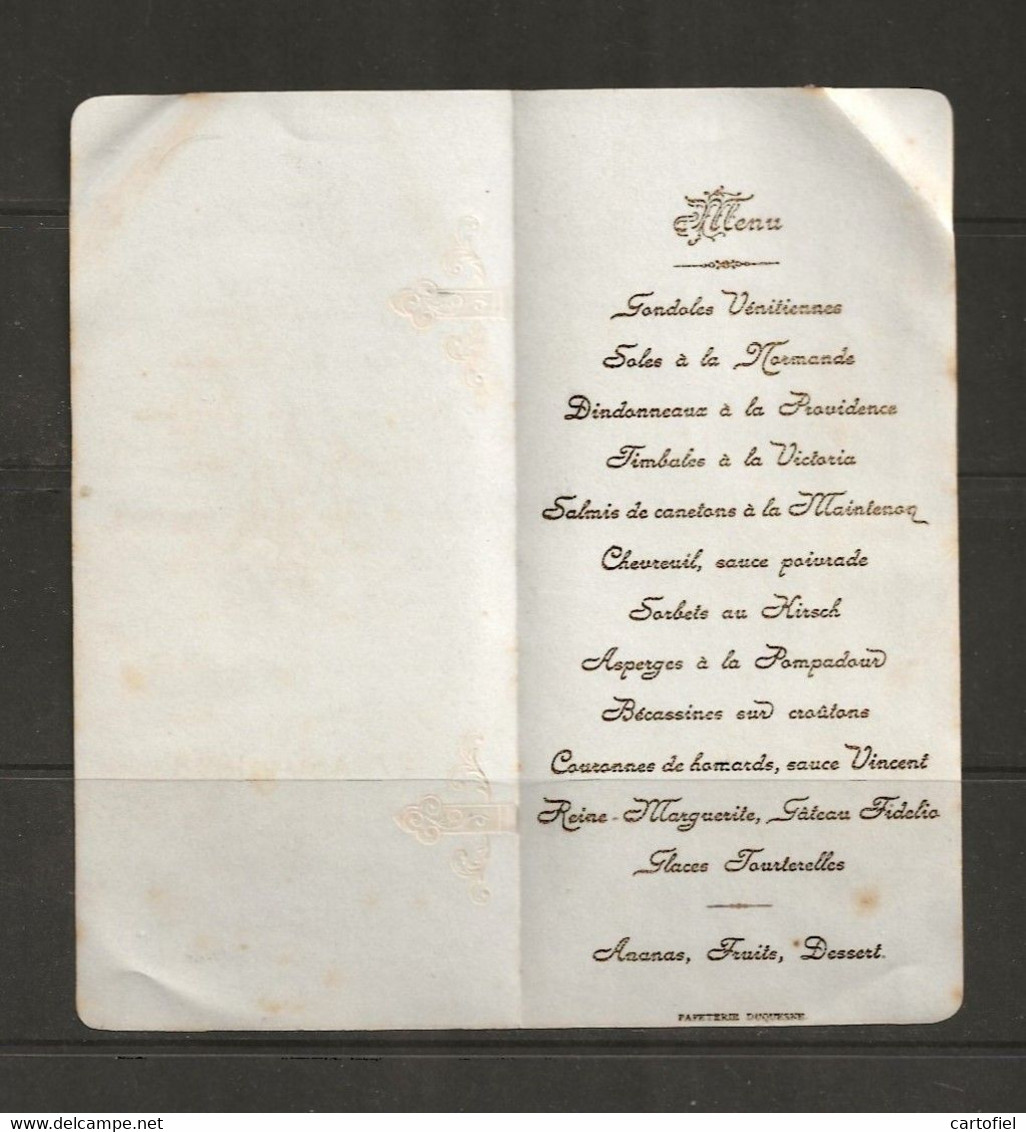 Menu
Gondoles Vénitiennes
Soles à la Normande
Dindonneaux à la Providence
Timbales à la Victoria
Salmis de canetons à la Maintenon
Chevreuil, sauce poivrade
Sorbets au Kirsch
Asperges à la Pompadour
Bécassines sur croûtons
Couronnes de homards, sauce Vincent
Reine-Marguerite, Gâteau Fidelio
Glaces Tourterelles
Ananas, Fruits, Dessert.
PAPETERIE DUQUESNE
www.delcampe.net
cartofiel